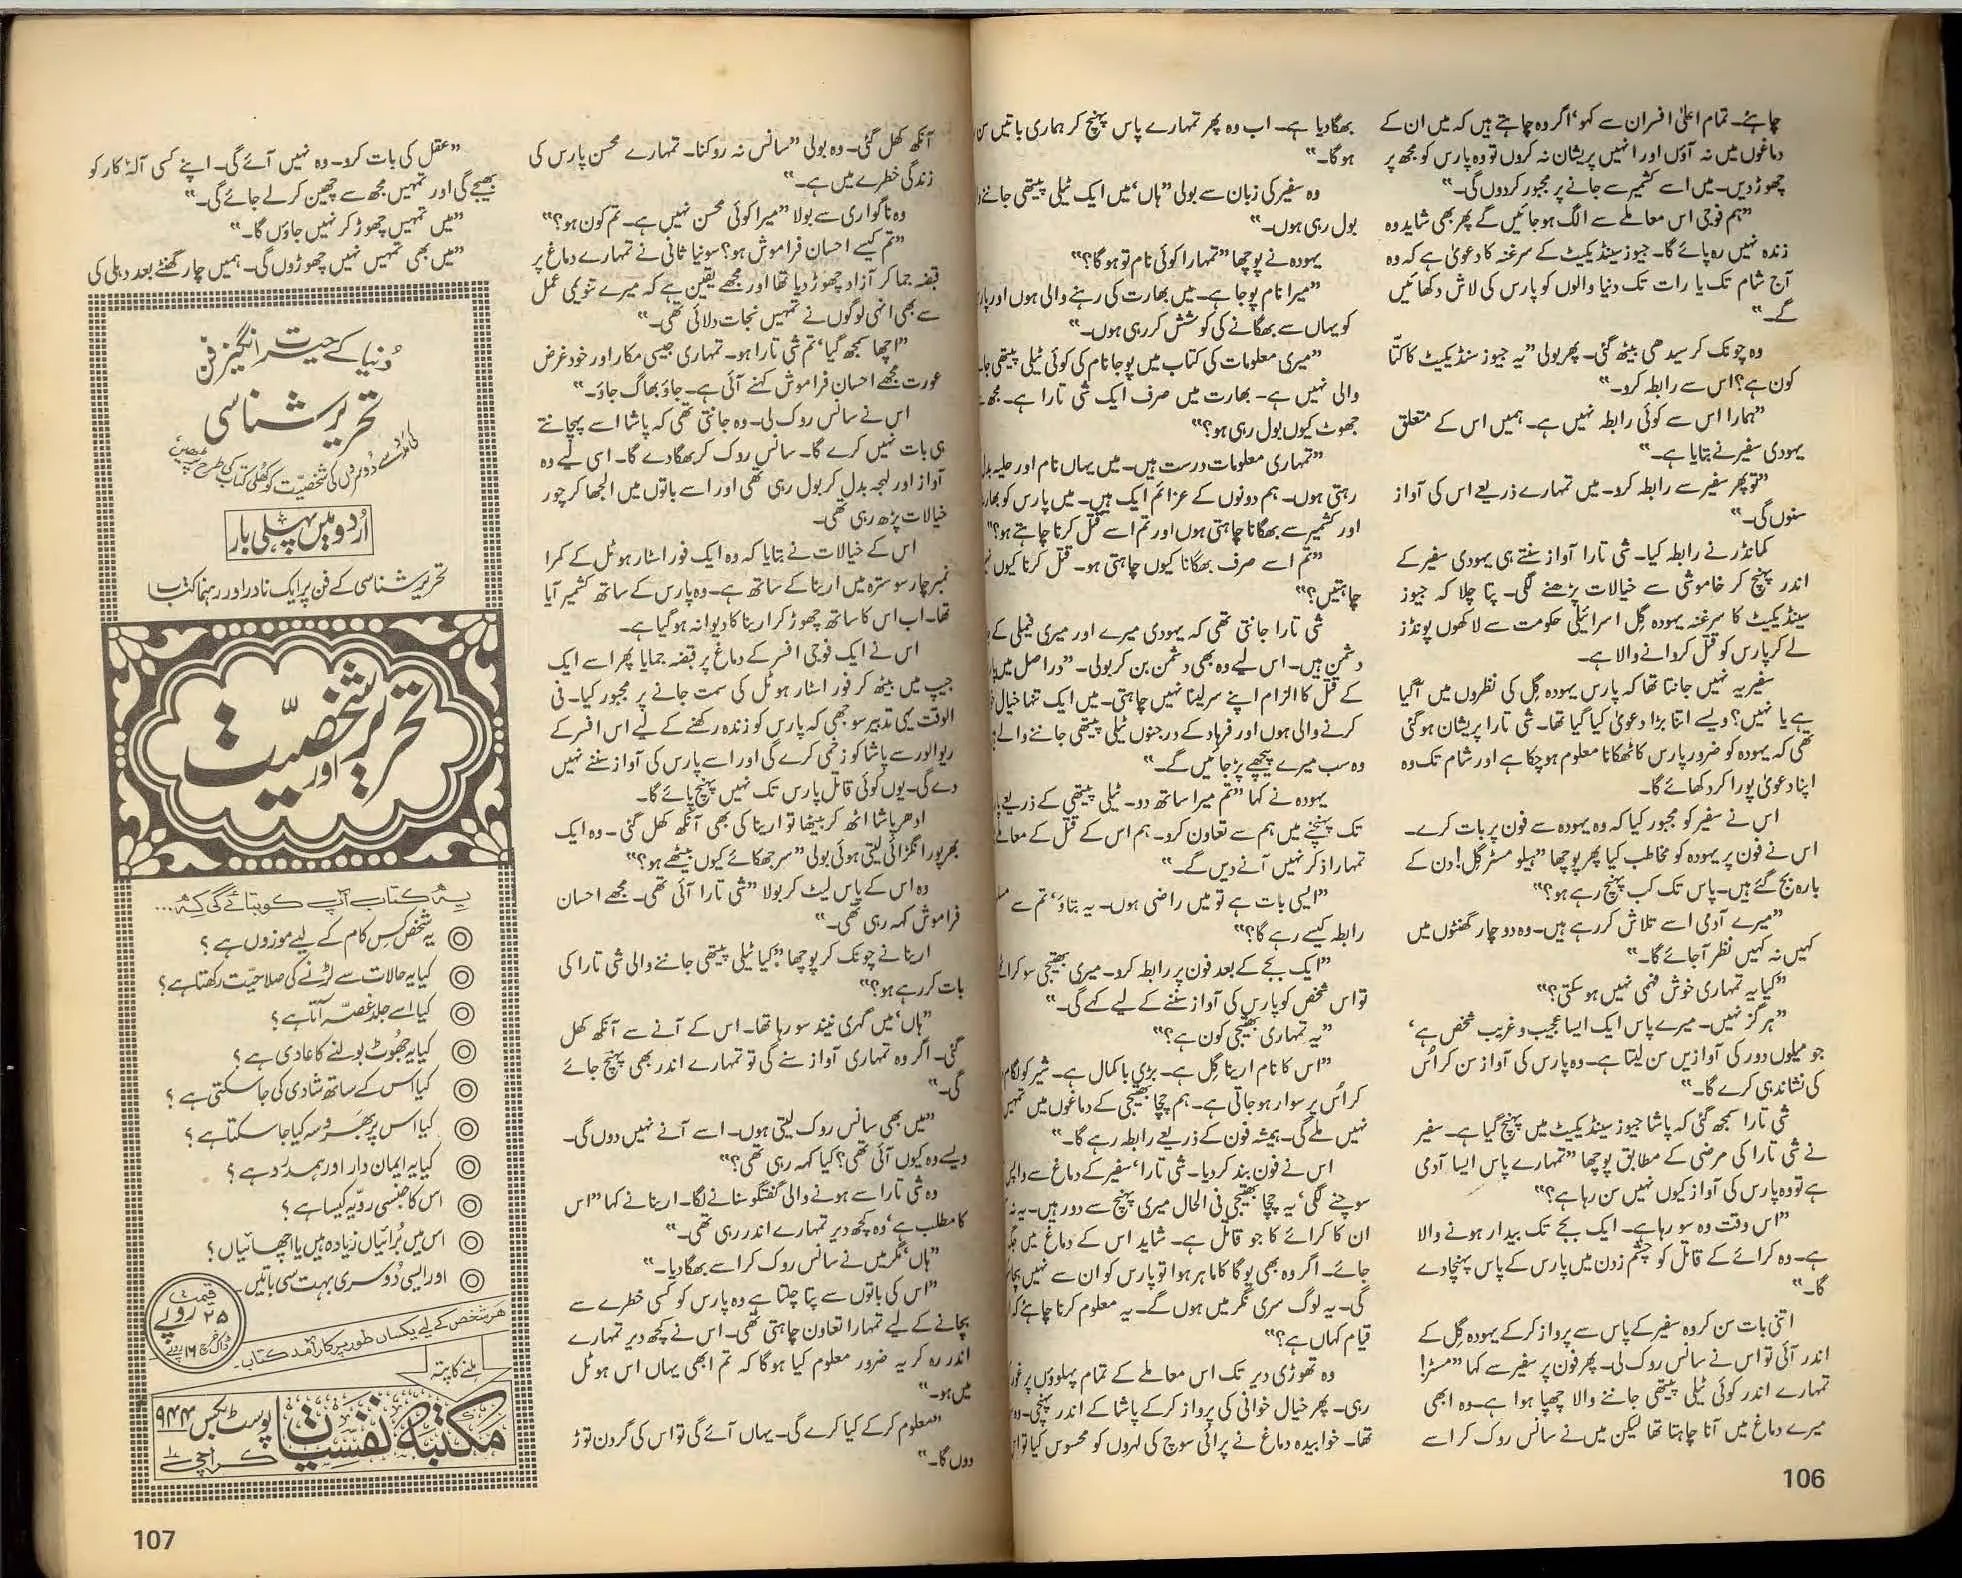 چاہئے۔ تمام اعلیٰ افسران سے کہو‘ اگر وہ چاہتے ہیں کہ میں ان کے
دماغوں میں نہ آؤں اور انہیں پریشان نہ کروں تو وہ پارس کو مجھ پر
چھوڑ دیں۔ میں اسے کشمیر سے جانے پر مجبور کر دوں گی۔“
”ہم فوجی اس معاملے سے الگ ہو جائیں گے پھر بھی شاید وہ
زندہ نہیں رہ پائے گا۔ جیوز سینڈیکیٹ کے سرغنہ کا دعویٰ ہے کہ وہ
آج شام تک یا رات تک دنیا والوں کو پارس کی لاش دکھائیں
گے۔“
وہ چونک کر سیدھی بیٹھ گئی۔ پھر بولی ”یہ جیوز سنڈیکیٹ کا کتّا
کون ہے؟ اس سے رابطہ کرو۔“
”ہمارا اس سے کوئی رابطہ نہیں ہے۔ ہمیں اس کے متعلق
یہودی سفیر نے بتایا ہے۔“
”تو پھر سفیر سے رابطہ کرو۔ میں تمہارے ذریعے اس کی آواز
سنوں گی۔“
کمانڈر نے رابطہ کیا۔ شی تارا آواز سنتے ہی یہودی سفیر کے
اندر پہنچ کر خاموشی سے خیالات پڑھنے لگی۔ پتا چلا کہ جیوز
سینڈیکیٹ کا سرغنہ یہودہ گِل اسرائیلی حکومت سے لاکھوں پونڈز
لے کر پارس کو قتل کروانے والا ہے۔
سفیر یہ نہیں جانتا تھا کہ پارس یہودہ گِل کی نظروں میں آگیا
ہے یا نہیں؟ ویسے اتنا بڑا دعویٰ کیا گیا تھا۔ شی تارا پریشان ہوگئی
تھی کہ یہودہ کو ضرور پارس کا ٹھکانا معلوم ہوچکا ہے اور شام تک وہ
اپنا دعویٰ پورا کر دکھائے گا۔
اس نے سفیر کو مجبور کیا کہ وہ یہودہ سے فون پر بات کرے۔
اس نے فون پر یہودہ کو مخاطب کیا پھر پوچھا ”ہیلو مسٹر گِل! دن کے
بارہ بج گئے ہیں۔ پاس تک کب پہنچ رہے ہو؟“
”میرے آدمی اسے تلاش کر رہے ہیں۔ وہ دو چار گھنٹوں میں
کہیں نہ کہیں نظر آجائے گا۔“
”کیا یہ تمہاری خوش فہمی نہیں ہو سکتی؟“
”ہرگز نہیں۔ میرے پاس ایک ایسا عجیب و غریب شخص ہے‘
جو میلوں دور کی آوازیں سن لیتا ہے۔ وہ پارس کی آواز سن کر اس
کی نشاندہی کرے گا۔“
شی تارا سمجھ گئی کہ پاشا جیوز سینڈیکیٹ میں پہنچ گیا ہے۔ سفیر
نے شی تارا کی مرضی کے مطابق پوچھا ”تمہارے پاس ایسا آدمی
ہے تو وہ پارس کی آواز کیوں نہیں سن رہا ہے؟“
”اس وقت وہ سو رہا ہے۔ ایک بجے تک بیدار ہونے والا
ہے۔ وہ کرائے کے قاتل کو چشم زدن میں پارس کے پاس پہنچا دے
گا۔“
اتنی بات سن کر وہ سفیر کے پاس سے پرواز کرکے یہودہ گِل کے
اندر آئی تو اس نے سانس روک لی۔ پھر فون پر سفیر سے کہا ”مسٹر!
تمہارے اندر کوئی ٹیلی پیتھی جاننے والا چھپا ہوا ہے۔ وہ ابھی
میرے دماغ میں آنا چاہتا تھا لیکن میں نے سانس روک کر اسے
106
بھگا دیا ہے۔ اب وہ پھر تمہارے پاس پہنچ کر ہماری باتیں سن
ہوگا۔“
وہ سفیر کی زبان سے بولی ”ہاں‘ میں ایک ٹیلی پیتھی جاننے
بول رہی ہوں۔“
یہودہ نے پوچھا ”تمہارا کوئی نام تو ہوگا؟“
”میرا نام پوجا ہے۔ میں بھارت کی رہنے والی ہوں اور
کو یہاں سے بھگانے کی کوشش کر رہی ہوں۔“
”میری معلومات کی کتاب میں پوجا نام کی کوئی ٹیلی پیتھی
والی نہیں ہے۔ بھارت میں صرف ایک شی تارا ہے۔ مجھ
جھوٹ کیوں بول رہی ہو؟“
”تمہاری معلومات درست ہیں۔ میں یہاں نام اور حلیہ
رہتی ہوں۔ ہم دونوں کے عزائم ایک ہیں۔ میں پارس کو
اور کشمیر سے بھگانا چاہتی ہوں اور تم اسے قتل کرنا چاہتے ہو؟“
”تم اسے صرف بھگانا کیوں چاہتی ہو۔ قتل کرنا کیوں
چاہتیں؟“
شی تارا جانتی تھی کہ یہودی میرے اور میری فیملی کے
دشمن ہیں۔ اس لیے وہ بھی دشمن بن کر بولی۔ ”دراصل میں
کے قتل کا الزام اپنے سر لینا نہیں چاہتی۔ میں ایک تنہا خیال
کرنے والی ہوں اور فرہاد کے درجنوں ٹیلی پیتھی جاننے والے
وہ سب میرے پیچھے پڑ جائیں گے۔“
یہودہ نے کہا ”تم میرا ساتھ دو۔ ٹیلی پیتھی کے ذریعے
تک پہنچنے میں ہم سے تعاون کرو۔ ہم اس کے قتل کے معاملے
تمہارا ذکر نہیں آنے دیں گے۔“
”ایسی بات ہے تو میں راضی ہوں۔ یہ بتاؤ‘ تم سے
رابطہ کیسے رہے گا؟“
”ایک بجے کے بعد فون پر رابطہ کرو۔ میری بھتیجی سو کر
تو اس شخص کو پارس کی آواز سننے کے لیے کہے گی۔“
”یہ تمہاری بھتیجی کون ہے؟“
”اس کا نام ارینا گِل ہے۔ بڑی باکمال ہے۔ شیر کو لگام
کر اُس پر سوار ہو جاتی ہے۔ ہم چچا بھتیجی کے دماغوں میں تمہیں
نہیں ملے گی۔ ہمیشہ فون کے ذریعے رابطہ رہے گا۔“
اس نے فون بند کر دیا۔ شی تارا‘ سفیر کے دماغ سے
سوچنے لگی‘ یہ چچا بھتیجی فی الحال میری پہنچ سے دور ہیں۔
ان کا کرائے کا جو قاتل ہے۔ شاید اس کے دماغ میں
جائے۔ اگر وہ بھی یوگا کا ماہر ہوا تو پارس کو ان سے نہیں
گی۔ یہ لوگ سری نگر میں ہوں گے۔ یہ معلوم کرنا چاہئے
قیام کہاں ہے؟“
وہ تھوڑی دیر تک اس معاملے کے تمام پہلوؤں پر غور
رہی۔ پھر خیال خوانی کی پرواز کرکے پاشا کے اندر پہنچی۔
تھا۔ خوابیدہ دماغ نے پرائی سوچ کی لہروں کو محسوس کیا
آنکھ کھل گئی۔ وہ بولی ”سانس نہ روکنا۔ تمہارے محسن پارس کی
زندگی خطرے میں ہے۔“
وہ ناگواری سے بولا ”میرا کوئی محسن نہیں ہے۔ تم کون ہو؟“
”تم کیسے احسان فراموش ہو؟ سونیا ثانی نے تمہارے دماغ پر
قبضہ جما کر آزاد چھوڑ دیا تھا اور مجھے یقین ہے کہ میرے تنویمی عمل
سے بھی انہی لوگوں نے تمہیں نجات دلائی تھی۔“
”اچھا سمجھ گیا‘ تم شی تارا ہو۔ تمہاری جیسی مکار اور خود غرض
عورت مجھے احسان فراموش کہنے آئی ہے۔ جاؤ بھاگ جاؤ۔“
اس نے سانس روک لی۔ وہ جانتی تھی کہ پاشا اسے پہچانتے
ہی بات نہیں کرے گا۔ سانس روک کر بھگا دے گا۔ اسی لیے وہ
آواز اور لہجہ بدل کر بول رہی تھی اور اسے باتوں میں الجھا کر چور
خیالات پڑھ رہی تھی۔
اس کے خیالات نے بتایا کہ وہ ایک فور اسٹار ہوٹل کے کمرا
نمبر چار سو سترہ میں ارینا کے ساتھ ہے۔ وہ پارس کے ساتھ کشمیر آیا
تھا۔ اب اس کا ساتھ چھوڑ کر ارینا کا دیوانہ ہوگیا ہے۔
اس نے ایک فوجی افسر کے دماغ پر قبضہ جمایا پھر اسے ایک
جیپ میں بیٹھ کر فور اسٹار ہوٹل کی سمت جانے پر مجبور کیا۔ فی
الوقت یہی تدبیر سوجھی کہ پارس کو زندہ رکھنے کے لیے اس افسر کے
ریوالور سے پاشا کو زخمی کرے گی اور اسے پارس کی آواز سننے نہیں
دے گی۔ یوں کوئی قاتل پارس تک نہیں پہنچ پائے گا۔
ادھر پاشا اٹھ کر بیٹھا تو ارینا کی بھی آنکھ کھل گئی۔ وہ ایک
بھرپور انگڑائی لیتی ہوئی بولی ”سر جھکائے کیوں بیٹھے ہو؟“
وہ اس کے پاس لیٹ کر بولا ”شی تارا آئی تھی۔ مجھے احسان
فراموش کہہ رہی تھی۔“
ارینا نے چونک کر پوچھا ”کیا ٹیلی پیتھی جاننے والی شی تارا کی
بات کر رہے ہو؟“
”ہاں‘ میں گہری نیند سو رہا تھا۔ اس کے آنے سے آنکھ کھل
گئی۔ اگر وہ تمہاری آواز سنے گی تو تمہارے اندر بھی پہنچ جائے
گی۔“
”میں بھی سانس روک لیتی ہوں۔ اسے آنے نہیں دوں گی۔
ویسے وہ کیوں آئی تھی؟ کیا کہہ رہی تھی؟“
وہ شی تارا سے ہونے والی گفتگو سنانے لگا۔ ارینا نے کہا ”اس
کا مطلب ہے‘ وہ کچھ دیر تمہارے اندر رہی تھی۔“
”ہاں‘ مگر میں نے سانس روک کر اسے بھگا دیا۔“
”اس کی باتوں سے پتا چلتا ہے وہ پارس کو کسی خطرے سے
بچانے کے لیے تمہارا تعاون چاہتی تھی۔ اس نے کچھ دیر تمہارے
اندر رہ کر یہ ضرور معلوم کیا ہوگا کہ تم ابھی یہاں اس ہوٹل
میں ہو۔“
”معلوم کرکے کیا کرے گی۔ یہاں آئے گی تو اس کی گردن توڑ
دوں گا۔“
”عقل کی بات کرو۔ وہ نہیں آئے گی۔ اپنے کسی آلۂ کار کو
بھیجے گی اور تمہیں مجھ سے چھین کر لے جائے گی۔“
”میں تمہیں چھوڑ کر نہیں جاؤں گا۔“
”میں بھی تمہیں نہیں چھوڑوں گی۔ ہمیں چار گھنٹے بعد دہلی کی
دُنیا کے حیرت انگیز فن
تحریر شناسی
دُوسروں کی شخصیّت کو کھلی کتاب کی طرح
اُردو میں پہلی بار
تحریر شناسی کے فن پر ایک نادر اور رہنما کتاب
تحریر اور شخصیّت
یہ کتاب آپ کو بتائے گی کہ...
یہ شخص کِس کام کے لیے موزوں ہے؟
کیا یہ حالات سے لڑنے کی صلاحیّت رکھتا ہے؟
کیا اسے جلد غصّہ آتا ہے؟
کیا یہ جھُوٹ بولنے کا عادی ہے؟
کیا اس کے ساتھ شادی کی جاسکتی ہے؟
کیا اس پر بھروسہ کیا جاسکتا ہے؟
کیا یہ ایمان دار اور ہمدرد ہے؟
اس کا جنسی رویّہ کیسا ہے؟
اس میں بُرائیاں زیادہ ہیں یا اچھائیاں؟
اور ایسی دُوسری بہت سی باتیں
قیمت
۲۵ روپے
ڈاک خرچ ۱۶ روپے
ہر شخص کے لیے یکساں طور پر کارآمد کتاب۔
ملنے کا پتہ
مکتبۂ نفسیات پوسٹ بکس ۹۴۴
کراچی ۱
107